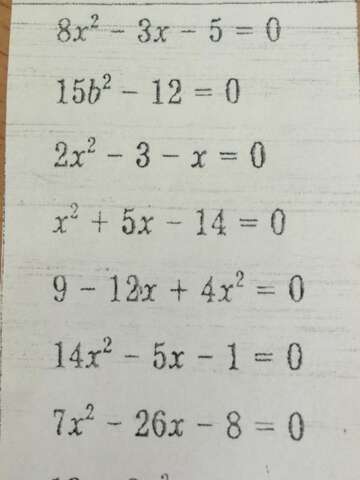 8x² − 3x − 5 = 0
15b² − 12 = 0
2x² − 3 − x = 0
x² + 5x − 14 = 0
9 − 12x + 4x² = 0
14x² − 5x − 1 = 0
7x² − 26x − 8 = 0